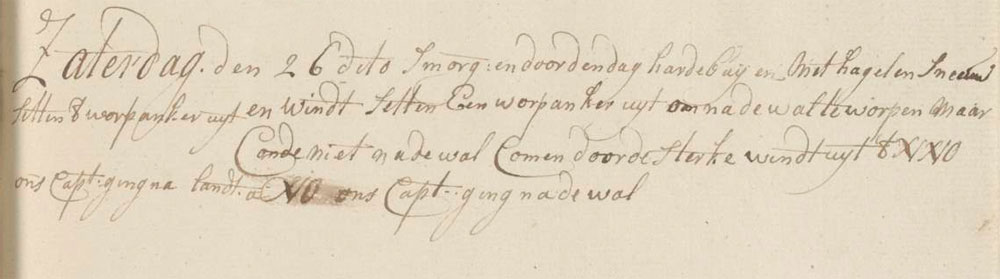 Zaterdag. den 26 dito Smorg: en doordendag hardebuijen Met hagel en Sneeuw
Setten t worpanker uyt en windt Setten Een worpanker uyt om nade wal te worpen Maar
Conde niet nade wal Comen doorde Sterke windt uyt t NNO
ons Capt: ging na landt. NO ons Capt: ging nade wal